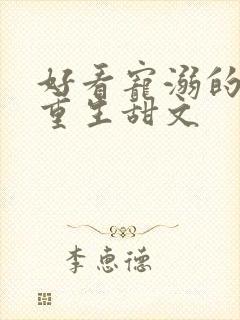 好看寵溺的
重生甜文
李惠德